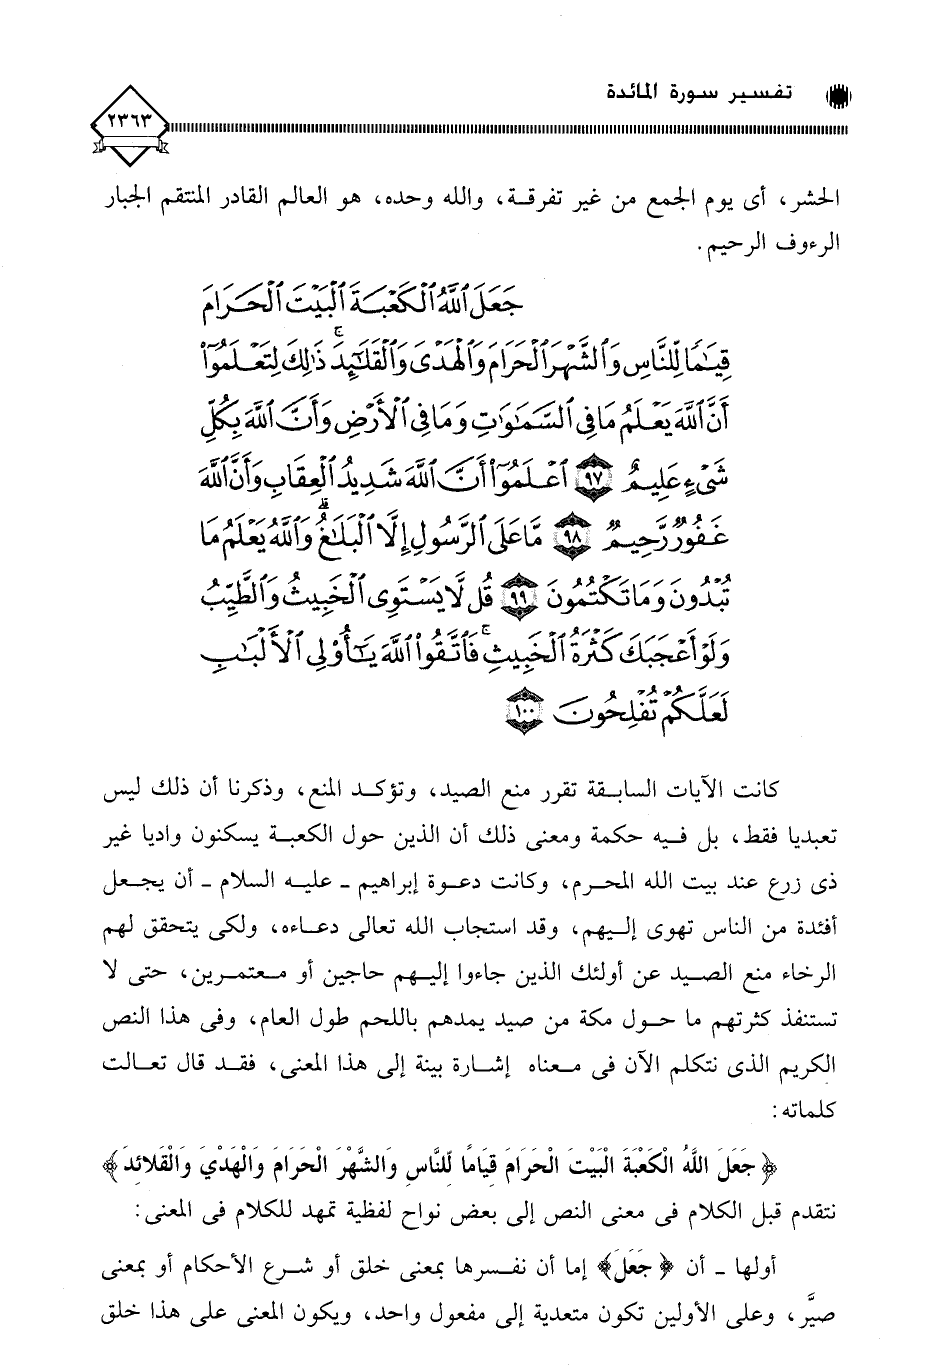 تفسير سورة المائدة
٢٣٦٣
الحشر، أى يوم الجمع من غير تفرقة، والله وحده، هو العالم القادر المنتقم الجبار
الرءوف الرحيم.
جَعَلَ ٱللَّهُ ٱلْكَعْبَةَ ٱلْبَيْتَ ٱلْحَرَامَ
قِيَٰمًا لِّلنَّاسِ وَٱلشَّهْرَ ٱلْحَرَامَ وَٱلْهَدْىَ وَٱلْقَلَٰٓئِدَ ۚ ذَٰلِكَ لِتَعْلَمُوٓا۟
أَنَّ ٱللَّهَ يَعْلَمُ مَا فِى ٱلسَّمَٰوَٰتِ وَمَا فِى ٱلْأَرْضِ وَأَنَّ ٱللَّهَ بِكُلِّ
شَىْءٍ عَلِيمٌ ٩٧ ٱعْلَمُوٓا۟ أَنَّ ٱللَّهَ شَدِيدُ ٱلْعِقَابِ وَأَنَّ ٱللَّهَ
غَفُورٌ رَّحِيمٌ ٩٨ مَّا عَلَى ٱلرَّسُولِ إِلَّا ٱلْبَلَٰغُ ۗ وَٱللَّهُ يَعْلَمُ مَا
تُبْدُونَ وَمَا تَكْتُمُونَ ٩٩ قُل لَّا يَسْتَوِى ٱلْخَبِيثُ وَٱلطَّيِّبُ
وَلَوْ أَعْجَبَكَ كَثْرَةُ ٱلْخَبِيثِ ۚ فَٱتَّقُوا۟ ٱللَّهَ يَٰٓأُو۟لِى ٱلْأَلْبَٰبِ
لَعَلَّكُمْ تُفْلِحُونَ ١٠٠
كانت الآيات السابقة تقرر منع الصيد، وتؤكد المنع، وذكرنا أن ذلك ليس
تعبديا فقط، بل فيه حكمة ومعنى ذلك أن الذين حول الكعبة يسكنون واديا غير
ذى زرع عند بيت الله المحرم، وكانت دعوة إبراهيم - عليه السلام - أن يجعل
أفئدة من الناس تهوى إليهم، وقد استجاب الله تعالى دعاءه، ولكى يتحقق لهم
الرخاء منع الصيد عن أولئك الذين جاءوا إليهم حاجين أو معتمرين، حتى لا
تستنفذ كثرتهم ما حول مكة من صيد يمدهم باللحم طول العام، وفى هذا النص
الكريم الذى نتكلم الآن فى معناه إشارة بينة إلى هذا المعنى، فقد قال تعالت
كلماته:
﴿جَعَلَ اللَّهُ الْكَعْبَةَ الْبَيْتَ الْحَرَامَ قِيَامًا لِّلنَّاسِ وَالشَّهْرَ الْحَرَامَ وَالْهَدْيَ وَالْقَلائِدَ﴾
نتقدم قبل الكلام فى معنى النص إلى بعض نواح لفظية تمهد للكلام فى المعنى:
أولها - أن ﴿جَعَلَ﴾ إما أن نفسرها بمعنى خلق أو شرع الأحكام أو بمعنى
صيَّر، وعلى الأولين تكون متعدية إلى مفعول واحد، ويكون المعنى على هذا خلق